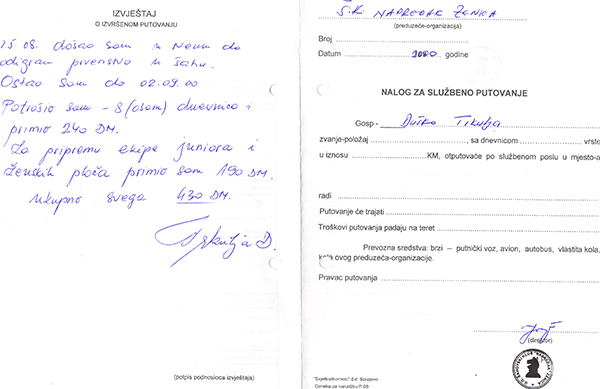 IZVJEŠTAJ
O IZVRŠENOM PUTOVANJU
15 08. došao sam u Neum da
odigram prvenstvo u šahu.
Ostao sam do 02.09.00
Potrošio sam - 8 (osam) dnevnica i
primio 240 DM.
Za pripremu ekipe juniora i
ženskih ploča primio sam 190 DM.
ukupno svega 430 DM.
(potpis podnosioca izvještaja)
Š.K. NAPREDAK ZENICA
(preduzeće-organizacija)
Broj
Datum 2000 godine
NALOG ZA SLUŽBENO PUTOVANJE
Gosp - Duško
zvanje-položaj , sa dnevnicom vrste
u iznosu KM, otputovaće po službenom poslu u mjesto-a
radi
Putovanje će trajati
Troškovi putovanja padaju na teret
Prevozna sredstva: brzi -- putnički voz, avion, autobus, vlastita kola,
kola ovog preduzeća-organizacije.
Pravac putovanja
(direktor)
"Svjetlostkomerc" d.d. Sarajevo